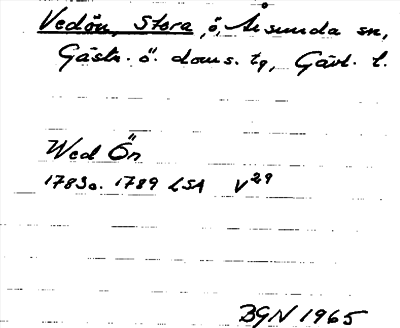 Vedön, Stora, ö, Årsunda sn,
Gästr. ö. doms. tg, Gävl. l.
Wed Ön
1783 o. 1789 LSA V29
BGN 1965